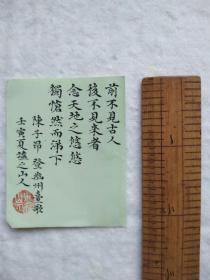 前不見古人
後不見来者
念天地之悠悠
獨愴然而涕下
陳子昂 登幽州臺歌
壬寅夏之山人